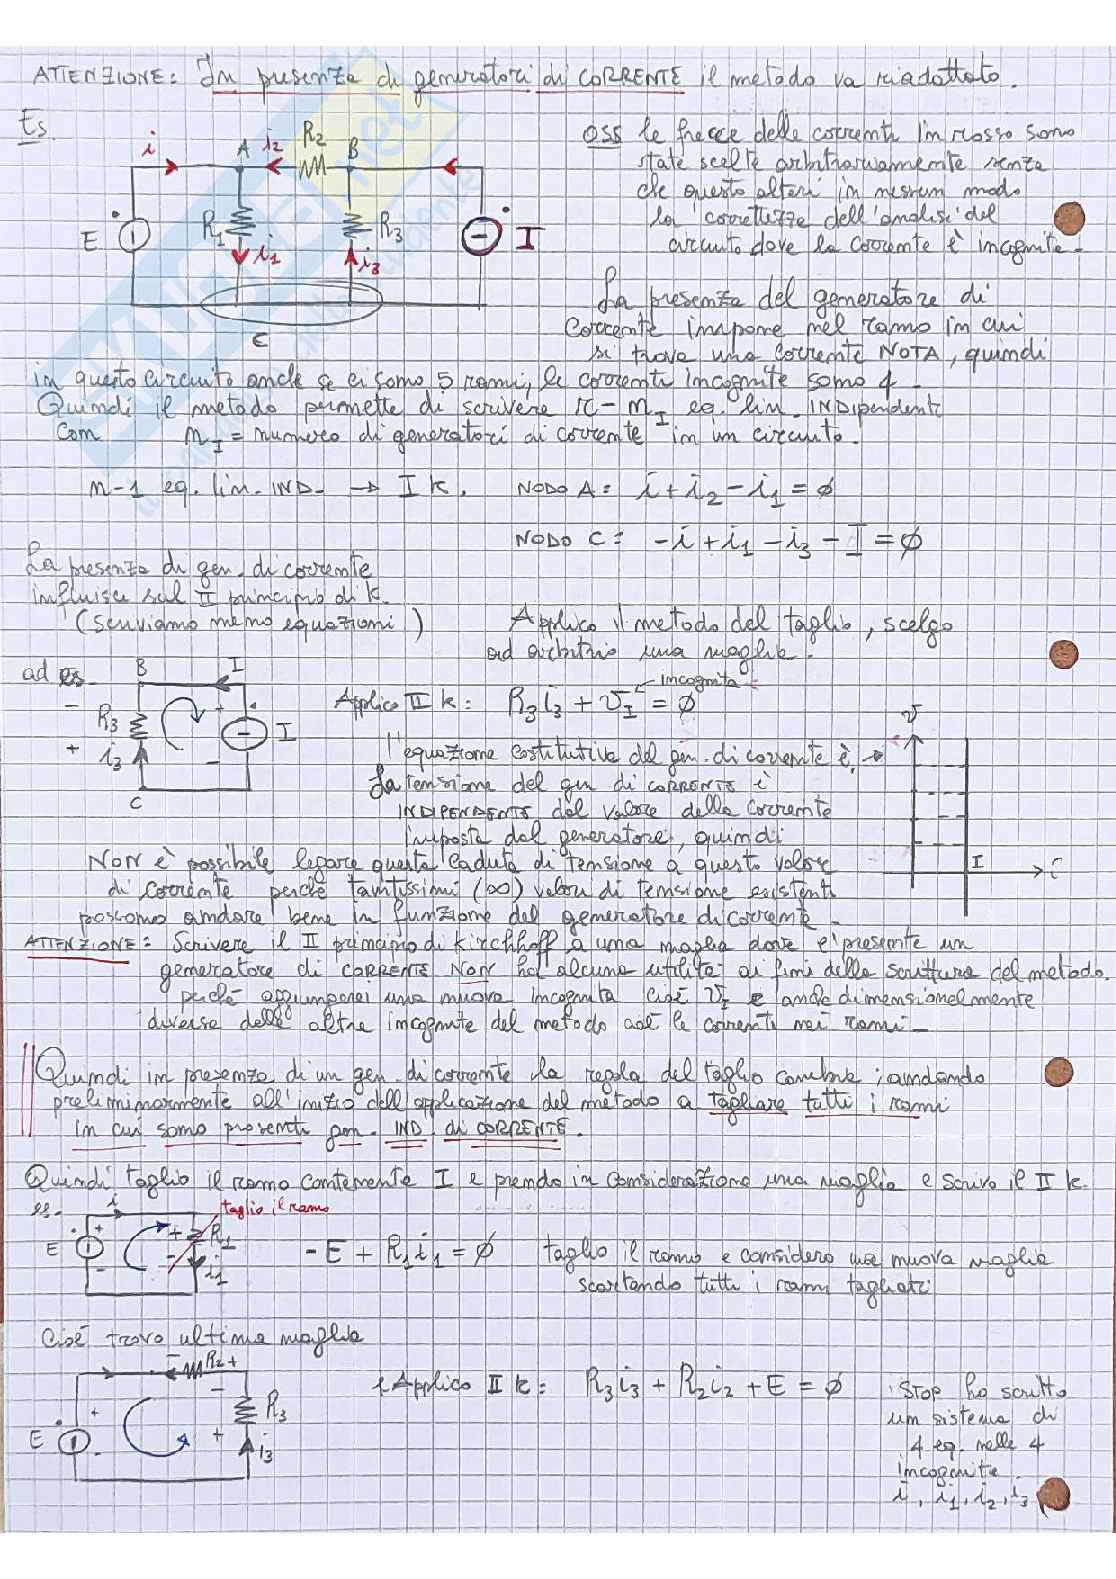 ATTENZIONE: In presenza di generatori di CORRENTE il metodo va riadattato.
Es.
i
A
i2
R2
B
E
R1
i1
R3
i3
I
C
OSS le frecce delle correnti in rosso sono
state scelte arbitrariamente senza
che questo alteri in nessun modo
la correttezza dell'analisi del
circuito dove la corrente è incognita.
La presenza del generatore di
corrente impone nel ramo in cui
si trova una corrente NOTA, quindi
in questo circuito anche se ci sono 5 rami, le correnti incognite sono 4.
Quindi il metodo permette di scrivere r - nI eq. lin. INDIPendenti
Con nI = numero di generatori di corrente in un circuito.
n-1 eq. lin. IND. → I k. NODO A: i + i2 - i1 = ∅
NODO C: -i + i1 - i3 - I = ∅
La presenza di gen. di corrente
influisce sul II principio di k.
(scriviamo meno equazioni)
Applico il metodo del taglio, scelgo
ad arbitrio una maglia.
ad es.
B
I
-
R3
+
i3
C
+
-
I
Applico II k: R3i3 + vI = ∅
incognita
l'equazione costitutiva del gen. di corrente è →
La tensione del gen di CORRENTE è
INDIPENDENTE dal valore della corrente
imposta dal generatore, quindi
NON è possibile legare questa caduta di tensione a questo valore
di corrente perché tantissimi (∞) valori di tensione esistenti
possono andare bene in funzione del generatore di corrente.
v
I
i
ATTENZIONE: Scrivere il II principio di Kirchhoff a una maglia dove è presente un
generatore di CORRENTE NON ha alcuna utilità ai fini della scrittura del metodo.
perché aggiungerei una nuova incognita cioè vI e anche dimensionalmente
diversa dalle altre incognite del metodo cioè le correnti nei rami.
Quindi in presenza di un gen. di corrente la regola del taglio cambia; andando
preliminarmente all'inizio dell'applicazione del metodo a tagliare tutti i rami
in cui sono presenti gen. IND. di CORRENTE.
Quindi taglio il ramo contenente I e prendo in considerazione una maglia e scrivo il II k.
es.
i
taglio il ramo
E
+
-
+
-
R1
i1
-E + R1i1 = ∅
taglio il ramo e considero una nuova maglia
scartando tutti i rami tagliati
Cioè trovo ultima maglia
- R2 +
E
+
-
-
R3
+
i3
e Applico II k: R3i3 + R2i2 + E = ∅
STOP ho scritto
un sistema di
4 eq. nelle 4
incognite
i, i1, i2, i3